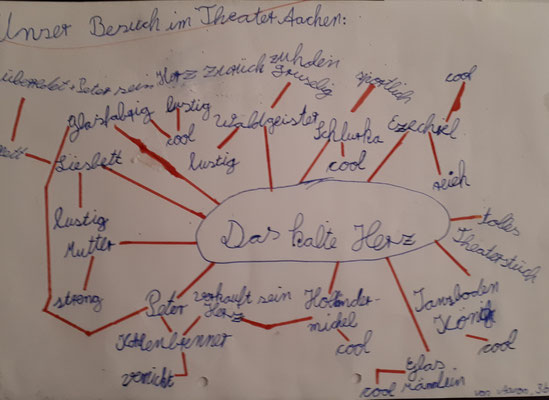 Unser Besuch im Theater Aachen:
überredet Peter sein Herz zurück zuholen
gruselig
sportlich
cool
Glasfabrig
lustig
cool
Waldgeister
lustig
Schlurka
cool
Ezechiel
reich
nett
Liesbett
lustig
Mutter
streng
Das kalte Herz
tolles
Theaterstück
Tanzboden
König
cool
Peter
verkauft sein
Herz
Holländer-
michel
cool
Kohlenbrenner
Glas
männlein
cool
von Aaron, 3b